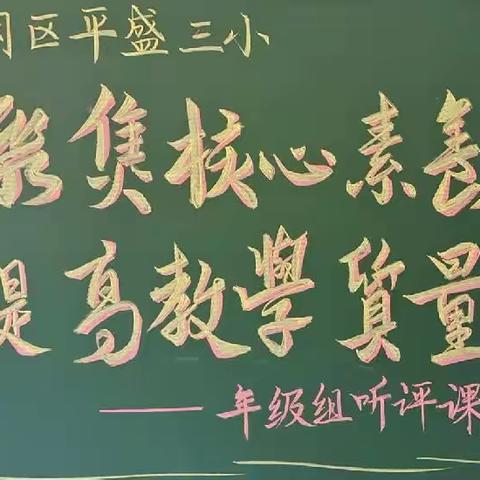 区平盛三小
聚焦核心素养
提高教學质量
——年级组听评课